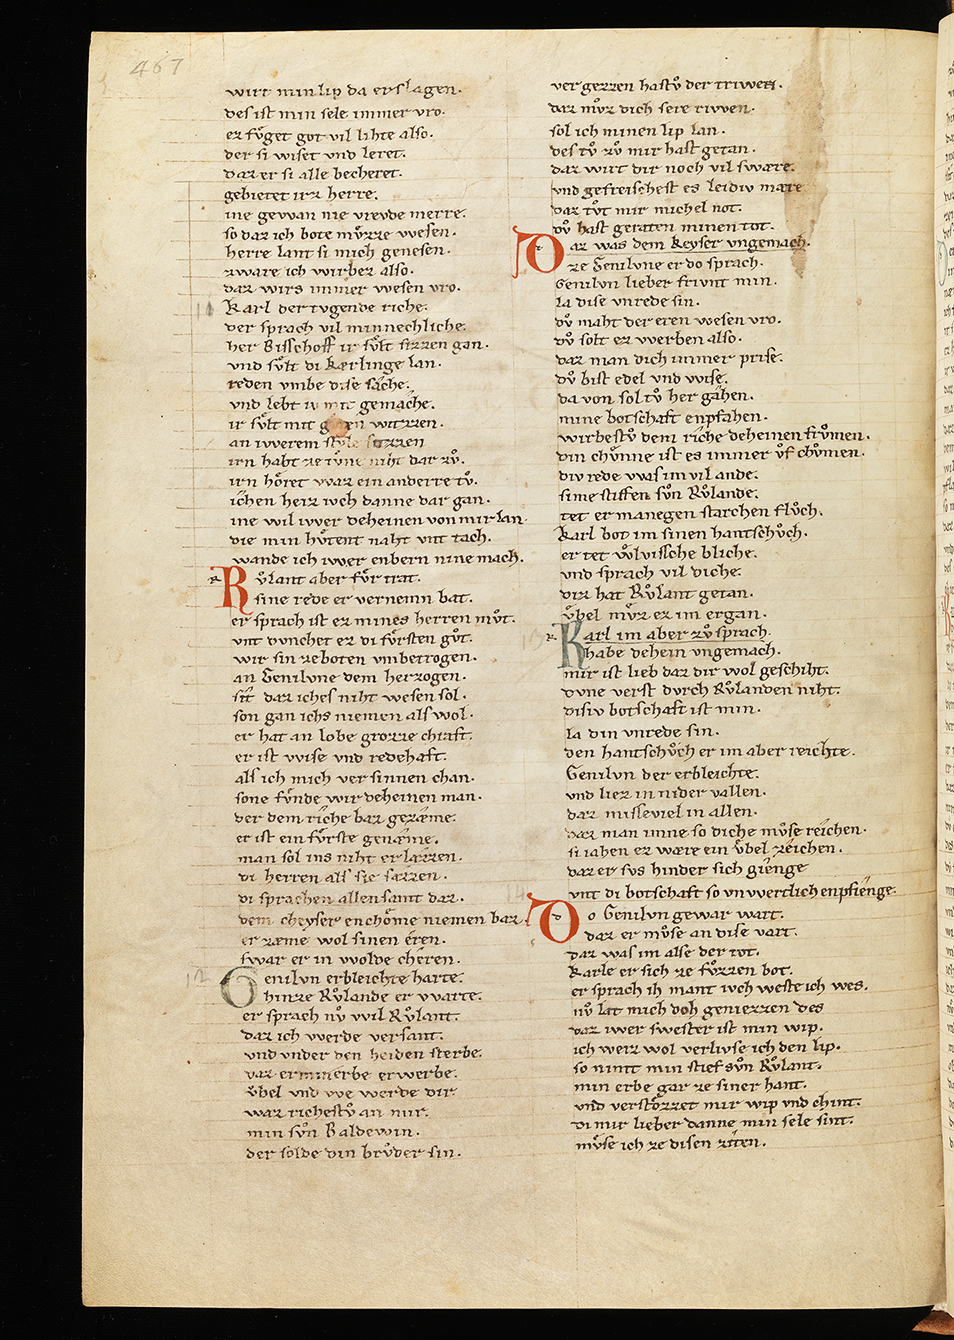 467
wirt min lip da erslagen.
des ist min sele immer vro.
ez fv̊get got vil lihte also.
der si wiset vnd leret.
daz er si alle becheret.
gebietet irz herre.
ine gewan nie vrevde merre.
so daz ich bote mv̊zze wesen.
herre lant si mich genesen.
zware ich wirbez also.
daz wirs immer wesen vro.
Karl der tvgende riche.
der sprach vil minnechliche.
her Bisschoff ir sv̊lt sizzen gan.
vnd sv̊lt di Kærlinge lan.
reden vmbe dise sache.
vnd lebt mit gemache.
ir sv̊lt mit witzen.
an iwerem stv̊le sitzen
irn habt ze tv̊ne niht dar zv̊.
irn hôret waz ein anderre tv̊.
ichen heiz ivch danne dar gan.
ine wil iwer deheinen von mir lan.
die min hv̊tent naht vnt tach.
wande ich iwer enbern nine mach.
Rv̊lant aber fv̊r trat.
sine rede er vernemn bat.
er sprach ist ez mines herren mv̊t.
vnt dvnchet ez di fv̊rsten gv̊t.
wir sin ze boten vmbetrogen.
an Genilvne dem herzogen.
sit daz iches niht wesen sol.
son gan ichs niemen als wol.
er hat an lobe grozze chraft.
er ist wise vnd redehaft.
als ich mich versinnen chan.
sone fv̊nde wir deheinen man.
der dem riche baz gezæme.
er ist ein fv̊rste genæme.
man sol ins niht erlazzen.
di herren als sie sazzen.
di sprachen allensamt daz.
dem cheyser enchôme niemen baz.
er zæme wol sinen eren.
swar er in wolde cheren.
Genilvn erbleichte harte.
hinze Rv̊lande er warte.
er sprach nv̊ wil Rv̊lant.
daz ich werde versant.
vnd vnder den heiden sterbe.
daz er min erbe erwerbe.
v̊bel vnd we werde dir.
waz richestv̊ an mir.
min sv̊n Baldewin.
der solde din brv̊der sin.
vergezzen hastv̊ der triwen.
daz mv̊z dich sere riwen.
sol ich minen lip lan.
des tv̊ zv̊ mir hast getan.
daz wirt dir noch vil swære.
vnd gefreischest es leidiv mære
daz tv̊t mir michel not.
dv̊ hast geraten minen tot.
Daz was dem Keyser vngemach.
ze Genilvne er do sprach.
Genilvn lieber frivnt min.
la dise vnrede sin.
dv̊ maht der eren wesen vro.
dv̊ solt ez werben also.
daz man dich immer prise.
dv̊ bist edel vnd wise.
da von sol tv̊ her gahen.
mine botschaft enpfahen.
wirbestv̊ dem riche deheinen frv̊men.
din chv̊nne ist es immer v̊f chv̊men.
div rede was im vil ande.
sime stiffen sv̊n Rv̊lande.
tet er manegen starchen flv̊ch.
Karl bot im sinen hantschv̊ch.
er tet wv̊lvissche bliche.
vnd sprach vil diche.
diz hat Rv̊lant getan.
v̊bel mv̊z ez im ergan.
Karl im aber zv̊ sprach.
habe dehein vngemach.
mir ist lieb daz dir wol geschiht.
dvne verst dvrch Rv̊landen niht.
disiv botschaft ist min.
la din vnrede sin.
den hantschv̊ch er im aber reichte.
Genilvn der erbleichte.
vnd liez in nider vallen.
daz misseviel in allen.
daz man inne so diche mv̊se reichen.
si iahen ez wære ein v̊bel zeichen.
daz er svs hinder sich gienge
vnt di botschaft so vnwertlich enpfienge.
Do Genilvn gewar wart.
daz er mv̊se an dise vart.
daz was im alse der tot.
Karle er sich ze fv̊zzen bot.
er sprach ih mant ivch weste ich wes.
nv̊ lat mich doh geniezzen des
daz iwer swester ist min wip.
ich weiz wol verlivse ich den lip.
so nimt min stief sv̊n Rv̊lant.
min erbe gar ze siner hant.
vnd verstôzzet mir wip vnd chint.
di mir lieber danne min sele sint.
mv̊se ich ze disen ziten.